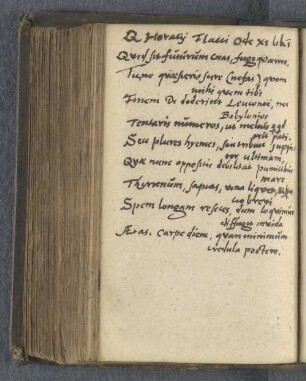 Q Horatij Flacci Ode XI libri
Quid sit futurum cras, fuge quaerere.
Tu ne quaesieris scire (nefas) quem
mihi quem tibi
Finem Di dederint Leuconoe, nec
Babylonios
Tentaris numeros, ut melius qqd
erit pati.
Seu plures hyemes, seu tribuit Juppiter
ultimam,
Quae nunc oppositis debilitat pumicibus
mare
Thyrrenum, sapias, vina liques,
brevi
Spem longam reseces, dum loquimur
invida
Aetas. Carpe diem, quam minimum
credula postero.